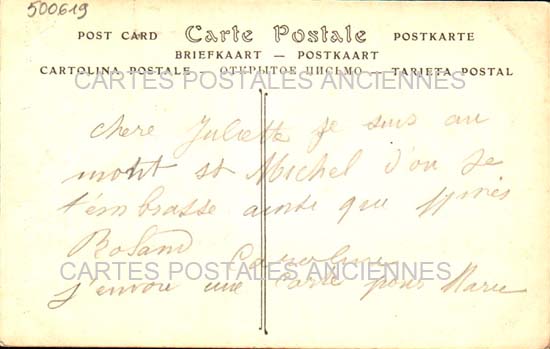 500619
POST CARD Carte Postale POSTKARTE
BRIEFKAART — POSTKAART
CARTOLINA POSTALE — ОТКРЫТОЕ ПИСЬМО — TARJETA POSTAL
CARTES POSTALES ANCIENNES
chere Juliette je suis au
mont st Michel d'ou je
t'embrasse ainsi que
Roland
CARTES POSTALES ANCIENNES
j'envoi une carte pour Marie